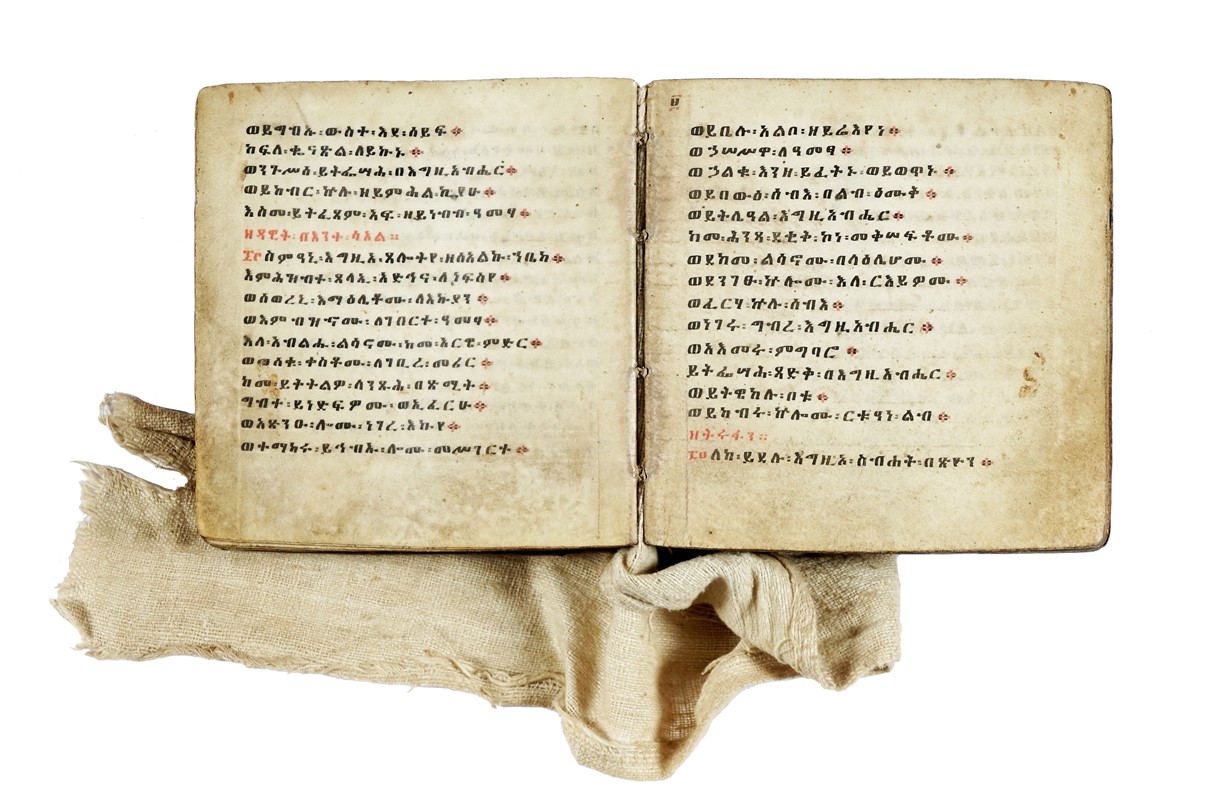 ወይግብኡ፡ውስተ፡እደ፡ሰይፍ፨
ክፍለ፡ቈናጽል፡ለይኩኑ፨
ወንጉሥሰ፡ይትፌሣሕ፡በእግዚአብሔር፨
ወይከብር፡ኵሉ፡ዘይምሕል፡ኪያሁ፨
እስመ፡ይትፈጸም፡አፍ፡ዘይነብብ፡ዓመፃ፨
ዘዳዊት፡በእንተ፡ሳኦል፡፡
፷፫ ስምዓኒ፡እግዚኦ፡ጸሎትየ፡ዘሰአልኩ፡ኀቤከ፨
ጸላኢ፡አድኅና፡ለነፍስየ፨
ወሰውረኒ፡እማዕሌቶሙ፡ለእኩያን፨
ወእምብዝኆሙ፡ለገበርተ፡ዓመፃ፨
እለ፡አብልሑ፡ልሳኖሙ፡ከመ፡አርዌ፡ምድር፨
ወወሰቁ፡ቀስቶሙ፡ለገቢረ፡መሪር፨
ከመ፡ይቅትልዎ፡ለንጹሕ፡በጽሚት፨
ግብተ፡ይነድፍዎሙ፡ወኢፈርሁ፨
ወአጽንዑ፡ሎሙ፡ነገረ፡እኩየ፨
ወተማከሩ፡ይኅብኡ፡ሎሙ፡መሥገርተ፨
ወይቤሉ፡አልቦ፡ዘይሬእየነ፨
ወኃሠሥዋ፡ለዓመፃ፨
ወኃልቁ፡እንዘ፡ይፈትኑ፡ወይወጥኑ፨
ወይበውዕ፡ሰብእ፡በልብ፡ዕሙቅ፨
ወይትሌዓል፡እግዚአብሔር፨
ከመ፡ሕንጻ፡ደቂቅ፡ኮነ፡መቅሠፍቶሙ፨
ወደክመ፡ልሳኖሙ፡በላዕሌሆሙ፨
ወደንገፁ፡ኵሎሙ፡እለ፡ርእይዎሙ፨
ወፈርሃ፡ኵሉ፡ሰብእ፨
ወነገሩ፡ግብረ፡እግዚአብሔር፨
ወአእመሩ፡ምግባሮ፨
ይትፌሣሕ፡ጻድቅ፡በእግዚአብሔር፨
ወይትዌከል፡ቦቱ፨
ወይከብሩ፡ኵሎሙ፡ርቱዓነ፡ልብ፨
ዘትሩፋን፡፡
፷፬ ለከ፡ይደሉ፡እግዚኦ፡ስብሐት፡በጽዮን፨